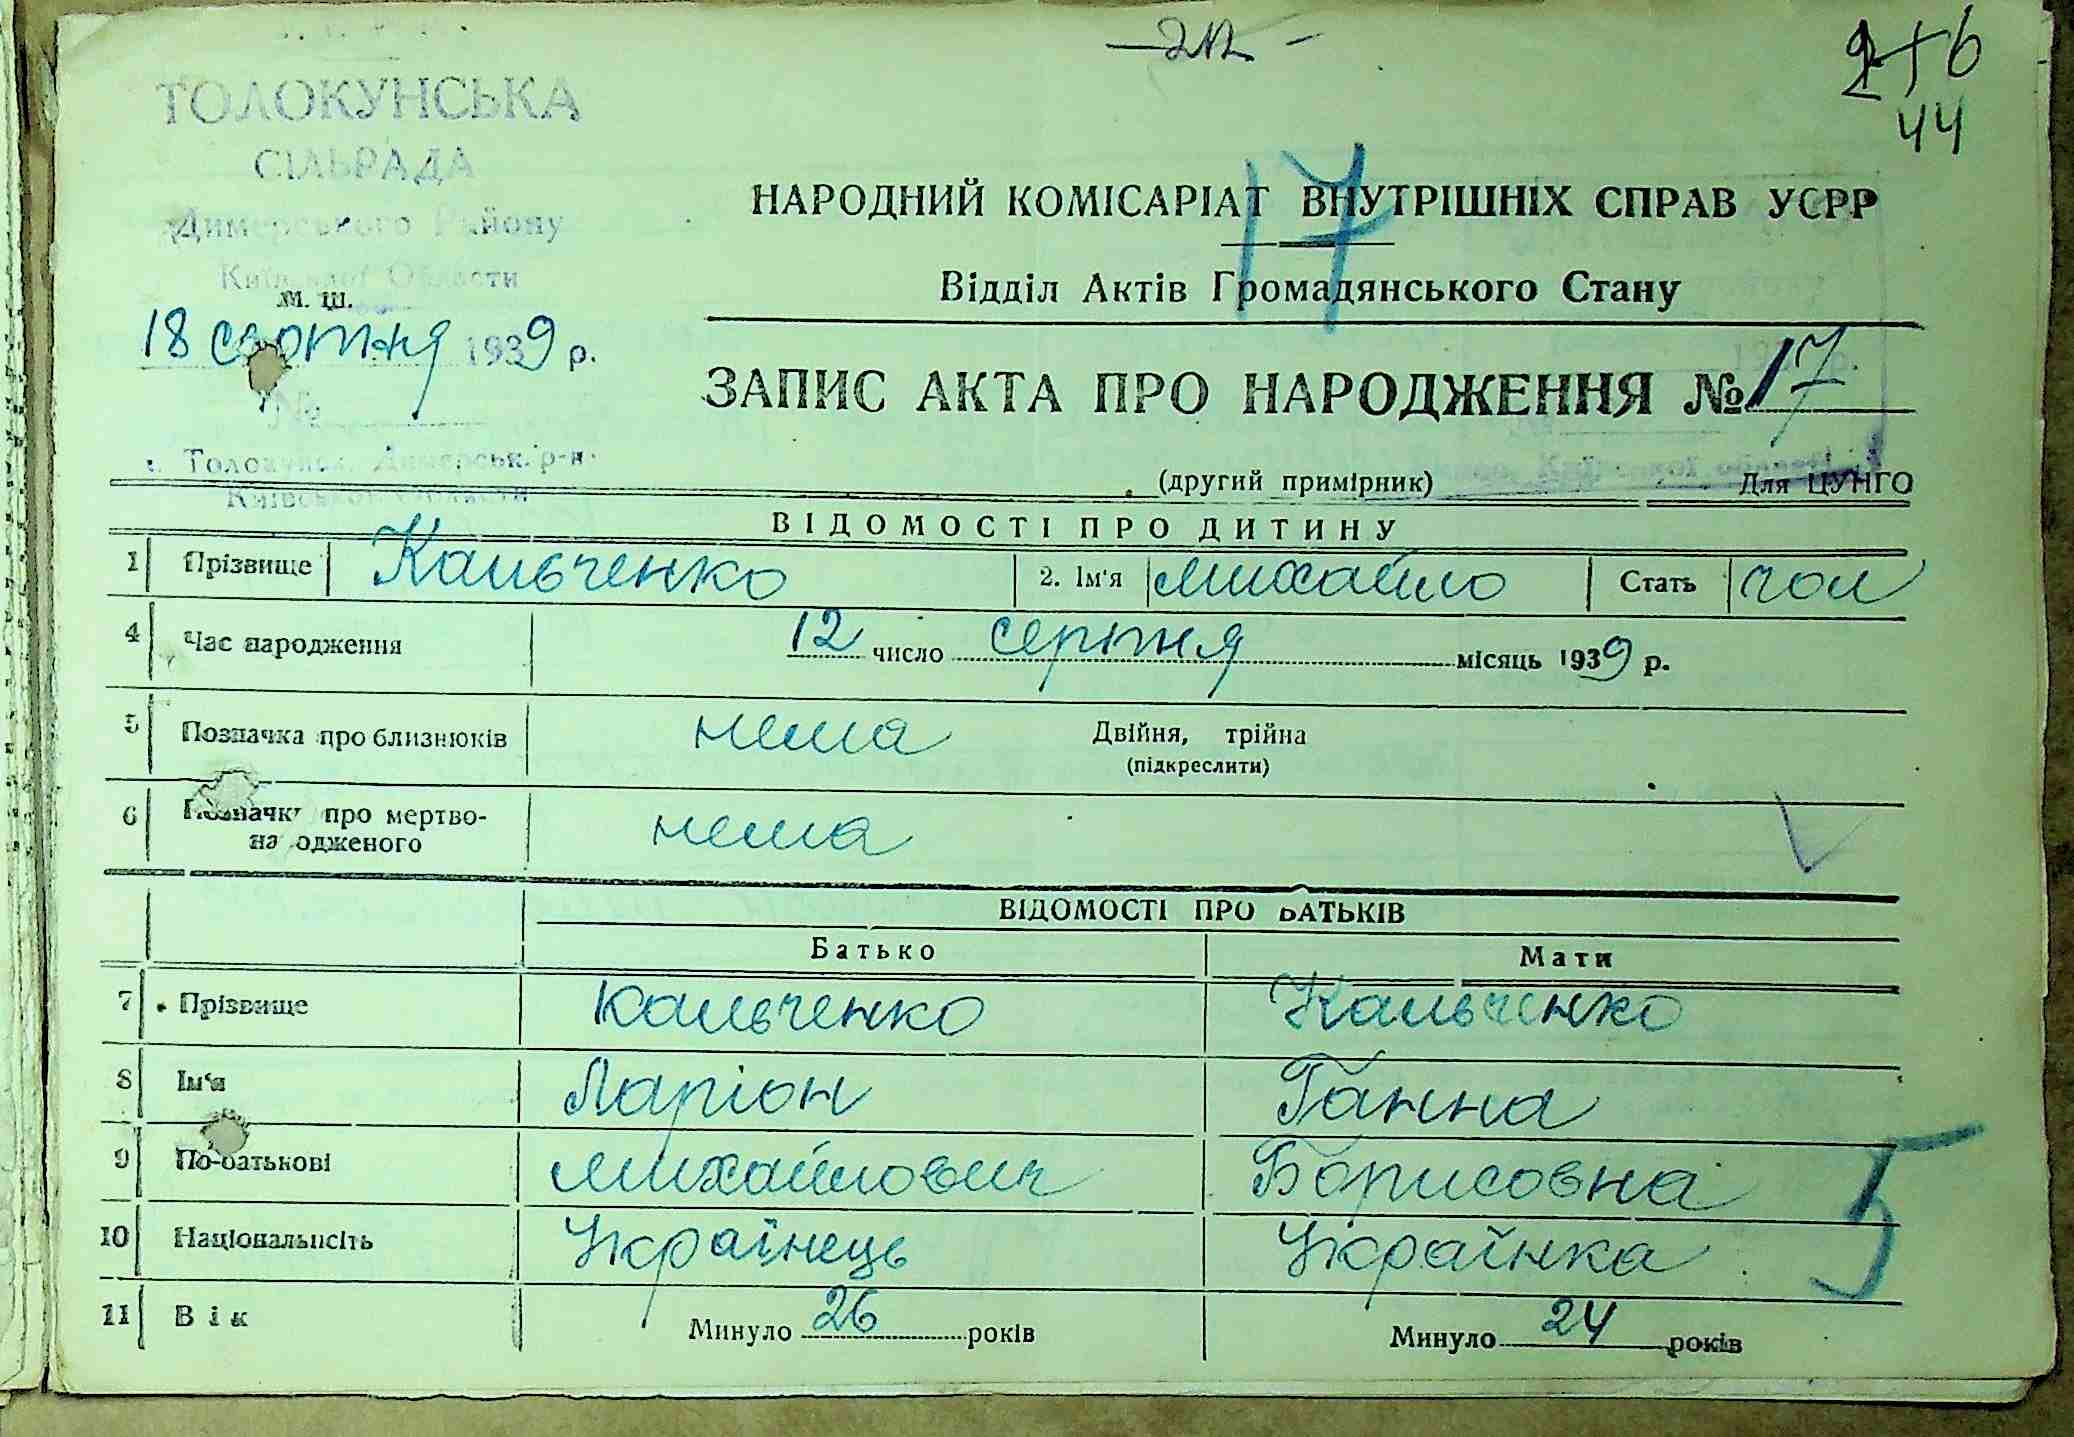 216
44
ТОЛОКУНСЬКА
СІЛЬРАДА
Димерського Району
Київської Области
м. ш.
18 серпня 1939 р.
№
с. Толокунск. Димерськ. р-н.
Київської области
17
НАРОДНИЙ КОМІСАРІАТ ВНУТРІШНІХ СПРАВ УСРР
Відділ Актів Громадянського Стану
ЗАПИС АКТА ПРО НАРОДЖЕННЯ № 17
(другий примірник) Для ЦУНГО
ВІДОМОСТІ ПРО ДИТИНУ
1 Прізвище Кальченко 2. Ім'я Михайло Стать чол
4 Час народження 12 число серпня місяць 1939 р.
5 Позначка про близнюків нема Двійня, трійна
(підкреслити)
6 Позначка про мертво-
народженого нема
ВІДОМОСТІ ПРО БАТЬКІВ
Батько Мати
7 Прізвище Кальченко Кальченко
8 Ім'я Ларіон Ганна
9 По-батькові Михайлович Борисовна
10 Національність Українець Українка
11 Вік Минуло 26 років Минуло 24 років
5